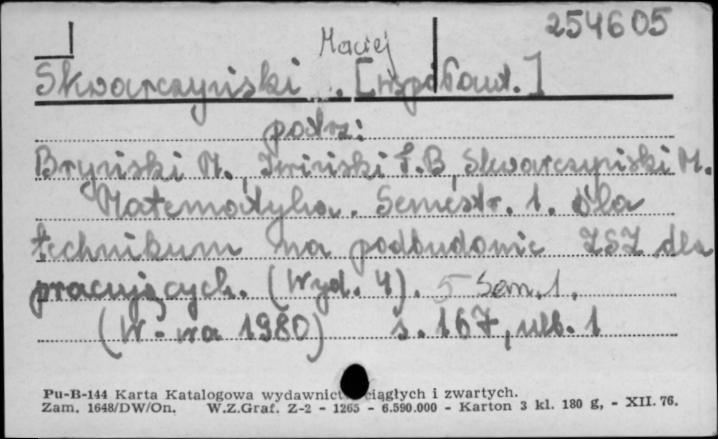 254605
Maciej
Skwarczyński . [współaut.]
patrz:
Bryński M., Iwiński T.B, Skwarczyński M.
Matematyka. Semestr. 1. Dla
technikum na podbudowie ZSZ dla
pracujących. (Wyd. 4). 5 Sem. 1.
(W-wa 1980) s. 167, nlb. 1
Pu-B-144 Karta Katalogowa wydawnict ciągłych i zwartych.
Zam. 1648/DW/On. W.Z.Graf. Z-2 - 1265 - 6.590.000 - Karton 3 kl. 180 g, - XII. 76.